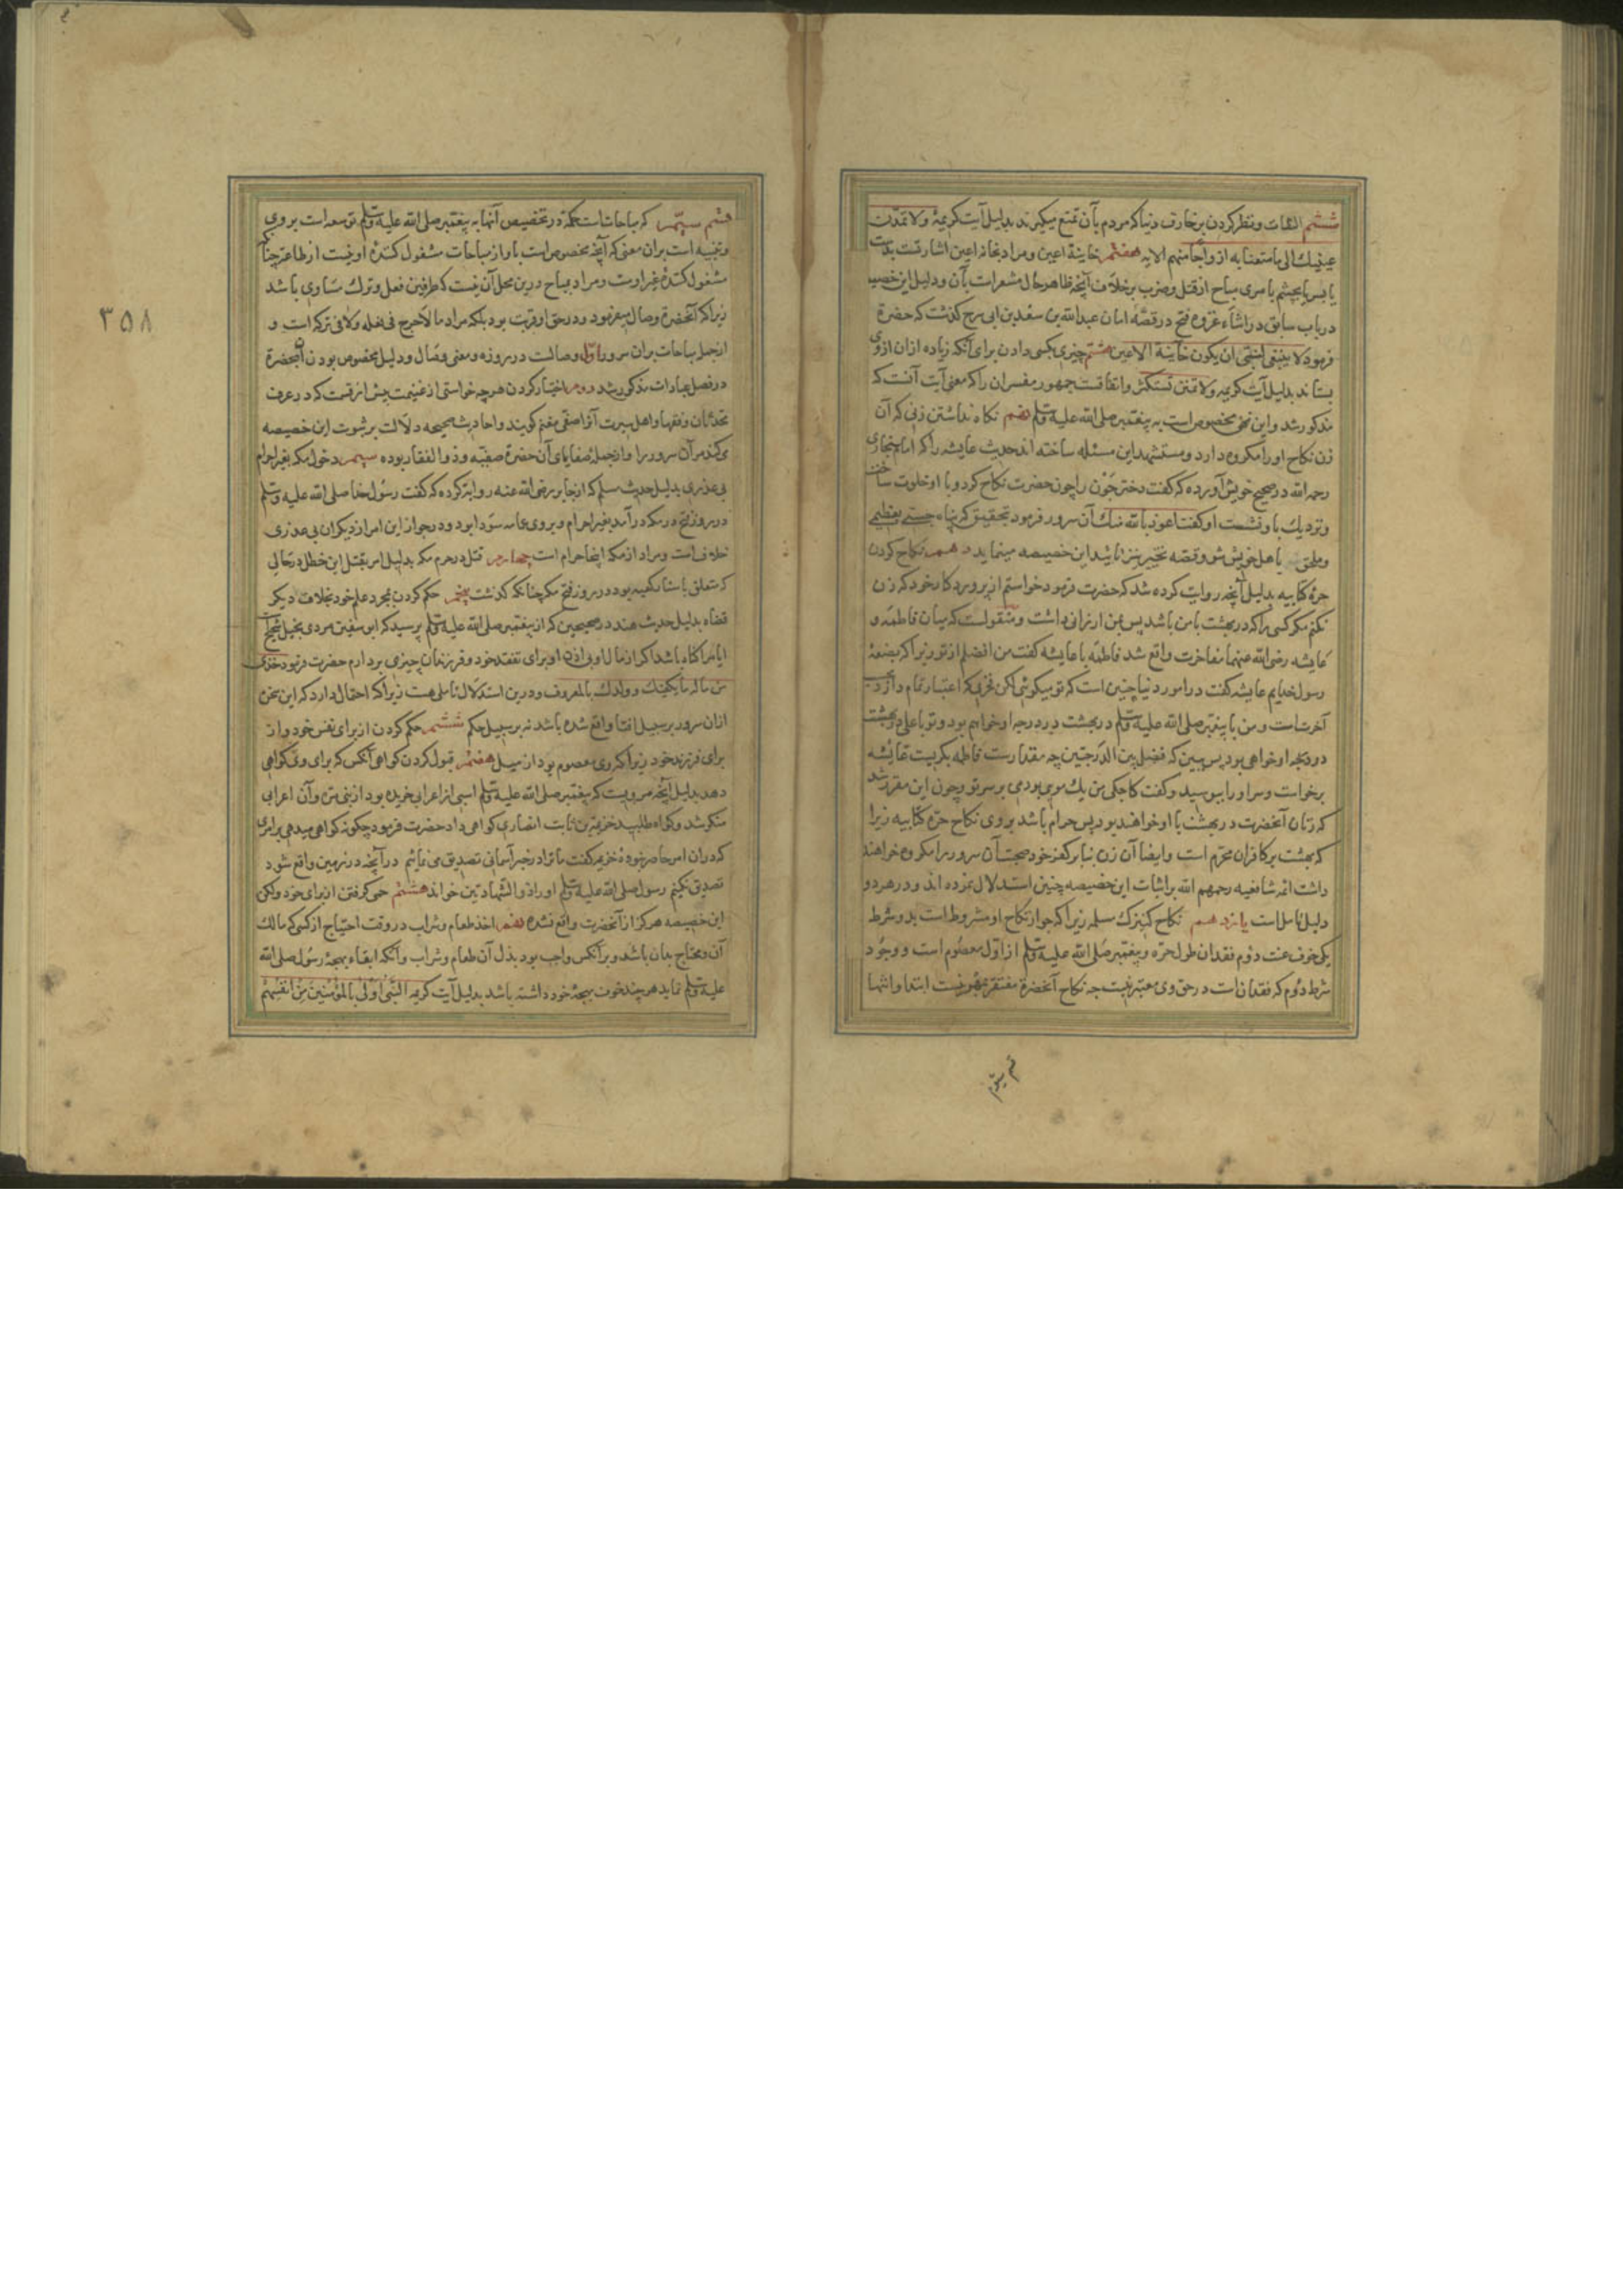 ششم التفات و نظر کردن بزخارف دنیا که مردم بآن تمتع میگیرند بدلیل آیت کریمهٔ ولا تمدّن
عینیك الی ما متعنا به ازواجا منهم الایه هفتم خاینة اعین و مراد بخاینة اعین اشارتست بدست
یا بسر یا بچشم بامری مباح از قتل و ضرب برخلاف آنچه ظاهر حال مشعر است بآن و دلیل این خصیصه
در باب سابق در اثناء غزوه فتح در قصّهٔ امان عبدالله بن سعد بن ابی سرح گذشت که حضرة
فرمود لا ینبغی لنبی ان یکون خاینة الاعین هشتم چیزی بکسی دادن برای آنکه زیاده ازان ازوی
بستاند بدلیل آیت کریمه ولا تمنن تستکثر واتفاقست جمهور مفسران را که معنی آیت آنست که
مذکور شد و این نهی مخصوص است به پیغمبر صلی الله علیه وسلم نهم نکاه نداشتن زنی که آن
زن نکاح او را مکروه دارد و مستشهد این مسئله ساخته اند حدیث عایشه را که امام بخاری
رحمه الله در صحیح خویش آورده که گفت دختر جَوْن را چون حضرت نکاح کرد و با او خلوت ساخت
و نزدیك باو نشست او گفت اعوذ بالله منك آن سرور فرمود بتحقیق که پناه جستی بعظیمی
و ملحق باهل خویش شو و قصه تخییر نیز تایید این خصیصه مینماید دهم نکاح کردن
حرهٔ کتابیه بدلیل آنچه روایت کرده شد که حضرت فرمود خواستم از پروردکار خود که زن
نکنم مکر کسی را که در بهشت با من باشد پس بمن ارزانی داشت و منقولست که میان فاطمه و
عایشه رضی الله عنهما مفاخرت واقع شد فاطمه با عایشه گفت من افضلم از تو زیرا که بضعهٔ
رسول خدایم عایشه گفت در امور دنیا چنین است که تو میکوئی لکن فخری که اعتبار تمام دارد در
آخرت است و من با پیغمبر صلی الله علیه وسلم در بهشت در درجه او خواهم بود و تو با علی در بهشت
در درجه او خواهی بود پس ببین که فضل بین الدرجتین چه مقدارست فاطمه بکریست عائشه
برخواست و سر او را ببوسید و گفت کاجکی من یك موی بودمی بر سر تو و چون این مقرر شد
که زنان آنحضرت در بهشت با او خواهند بود پس حرام باشد بروی نکاح حرّه کتابیه زیرا
که بهشت بر کافران محرّم است و ایضا آن زن بنا بر کفر خود صحبت آن سرور را مکروه خواهند
داشت ائمه شافعیه رحمهم الله بر اثبات این خصیصه چنین استدلال نموده اند و در هر دو
دلیل تامل است یازدهم نکاح کنیزك مسلمه زیرا که جواز نکاح او مشروط است بدو شرط
یکی خوف عنت دوم فقدان طول حرّه و پیغمبر صلی الله علیه وسلم از اول معصوم است و وجود
شرط دوم که فقدان است در حق وی معتبر نیست چه نکاح آنحضرة مفتقر بمهر نیست ابتدا وانتها
قسم سیّم
۳۵۸
قسم سیّم که مباحات است حکمة در تخصیص آنها به پیغمبر صلی الله علیه وسلم توسعه است بروی
و تنبیه است بران معنی که آنچه مخصوص است باو از مباحات مشغول کنندهٔ او نیست از طاعت چنانچه
مشغول کنندهٔ غیر اوست و مراد بمباح درین محل آن نیست که طرفین فعل و ترك مساوی باشد
زیرا که آنحضرة وصال میفرمود و در حق او قربت بود بلکه مراد ما لا حرج فی فعله ولا فی ترکه است و
از جمله مباحات بران سرور اول وصالست در روزه و معنی وصال و دلیل مخصوص بودن آن بحضرة
در فصل عبادات مذکور شد دوم اختیار کردن هرچه خواستی از غنیمت پیش از قسمت که در عرف
محدثان و فقها و اهل سیرت آنرا صفی مغنم گویند و احادیث صحیحه دلالت بر ثبوت این خصیصه
می کند مر آن سرور را و از جملهٔ صفایای آن حضرة صفیّه و ذوالفقار بوده سیم دخول مکه بغیر احرام
بی عذری بدلیل حدیث مسلم که از جابر رضی الله عنه روایة کرده که گفت رسول خدا صلی الله علیه وسلم
در روز فتح در مکه در آمد بغیر احرام و بروی عمامه سودا بود و در جواز این امر از دیکران بی عذری
خلاف است و مراد از مکه اینجا حرام است چهارم قتل در حرم مکه بدلیل امر بقتل ابن خطل در حالی
که متعلق باستار کعبه بود در روز فتح مکه چنانکه کذشت پنجم حکم کردن بمجرد علم خود بخلاف دیکر
قضاة بدلیل حدیث هند در صحیحین که از پیغمبر صلی الله علیه وسلم پرسید که ابوسفین مردی بخیل شحیح
ایا مرا کناه باشد اکر از مال او بی اذن او برای نفقه خود و فرزندان چیزی بردارم حضرت فرمود خذی
من ماله ما یکفیك و ولدك بالمعروف و درین استدلال تاملی هست زیرا که احتمال دارد که این سخن
ازان سرور بر سبیل افتا واقع شده باشد نه بر سبیل حکم ششم حکم کردن از برای نفس خود و از
برای فرزند خود زیرا که وی معصوم بود از میل هفتم قبول کردن کواهی آنکس که برای وی کواهی
دهد بدلیل آنچه مرویست که پیغمبر صلی الله علیه وسلم اسبی از اعرابی خریده بود از بنی مره و آن اعرابی
منکر شد و کواه طلبید خزیمه بن ثابت انصاری کواهی داد حضرت فرمود چکونه کواهی میدهی بر امری
که دران امر حاضر نبودهٔ خزیمه گفت ما ترا در خبر آسمانی تصدیق می نمائیم در آنچه در زمین واقع شود
تصدیق نکنیم رسول صلی الله علیه وسلم او را ذوالشهادتین خواند هشتم حمی کرفتن از برای خود ولکن
این خصیصه هرکز از آنحضرت واقع نشده نهم اخذ طعام و شراب در وقت احتیاج از کسی که مالك
آن و محتاج بدان باشد و بر آنکس واجب بود بذل آن طعام و شراب و آنکه ابقاء مهجهٔ رسول صلی الله
علیه وسلم نماید هر چند خوف مهجهٔ خود داشته باشد بدلیل آیت کریمه النبی اولی بالمؤمنین من انفسهم